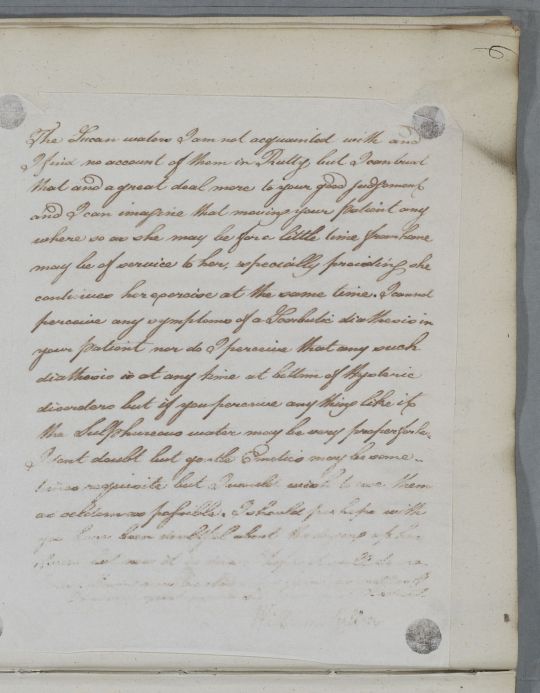 6
The Lucan waters I am not acquainted with and
I find no account of them in Rutty but I can trust
that and a great deal more to your good judgement
and I can imagine that moving your patient any
where so as she may be for a little time from home
may be of service to her, especially providing she
continues her exercise at the same time. I cannot
perceive any symptoms of a Scorbutic diathesis in
your patient nor do I perceive that any such
diathesis is at any time at bottom of Hysteric
disorders but if you perceive any thing like it
the Sulphureous water may be very proper for her.
I dont doubt but gentle Emetics may be some-
times requisite but I would wish to use them
as seldom as possible. I should perhaps with
you have been doubtful about the